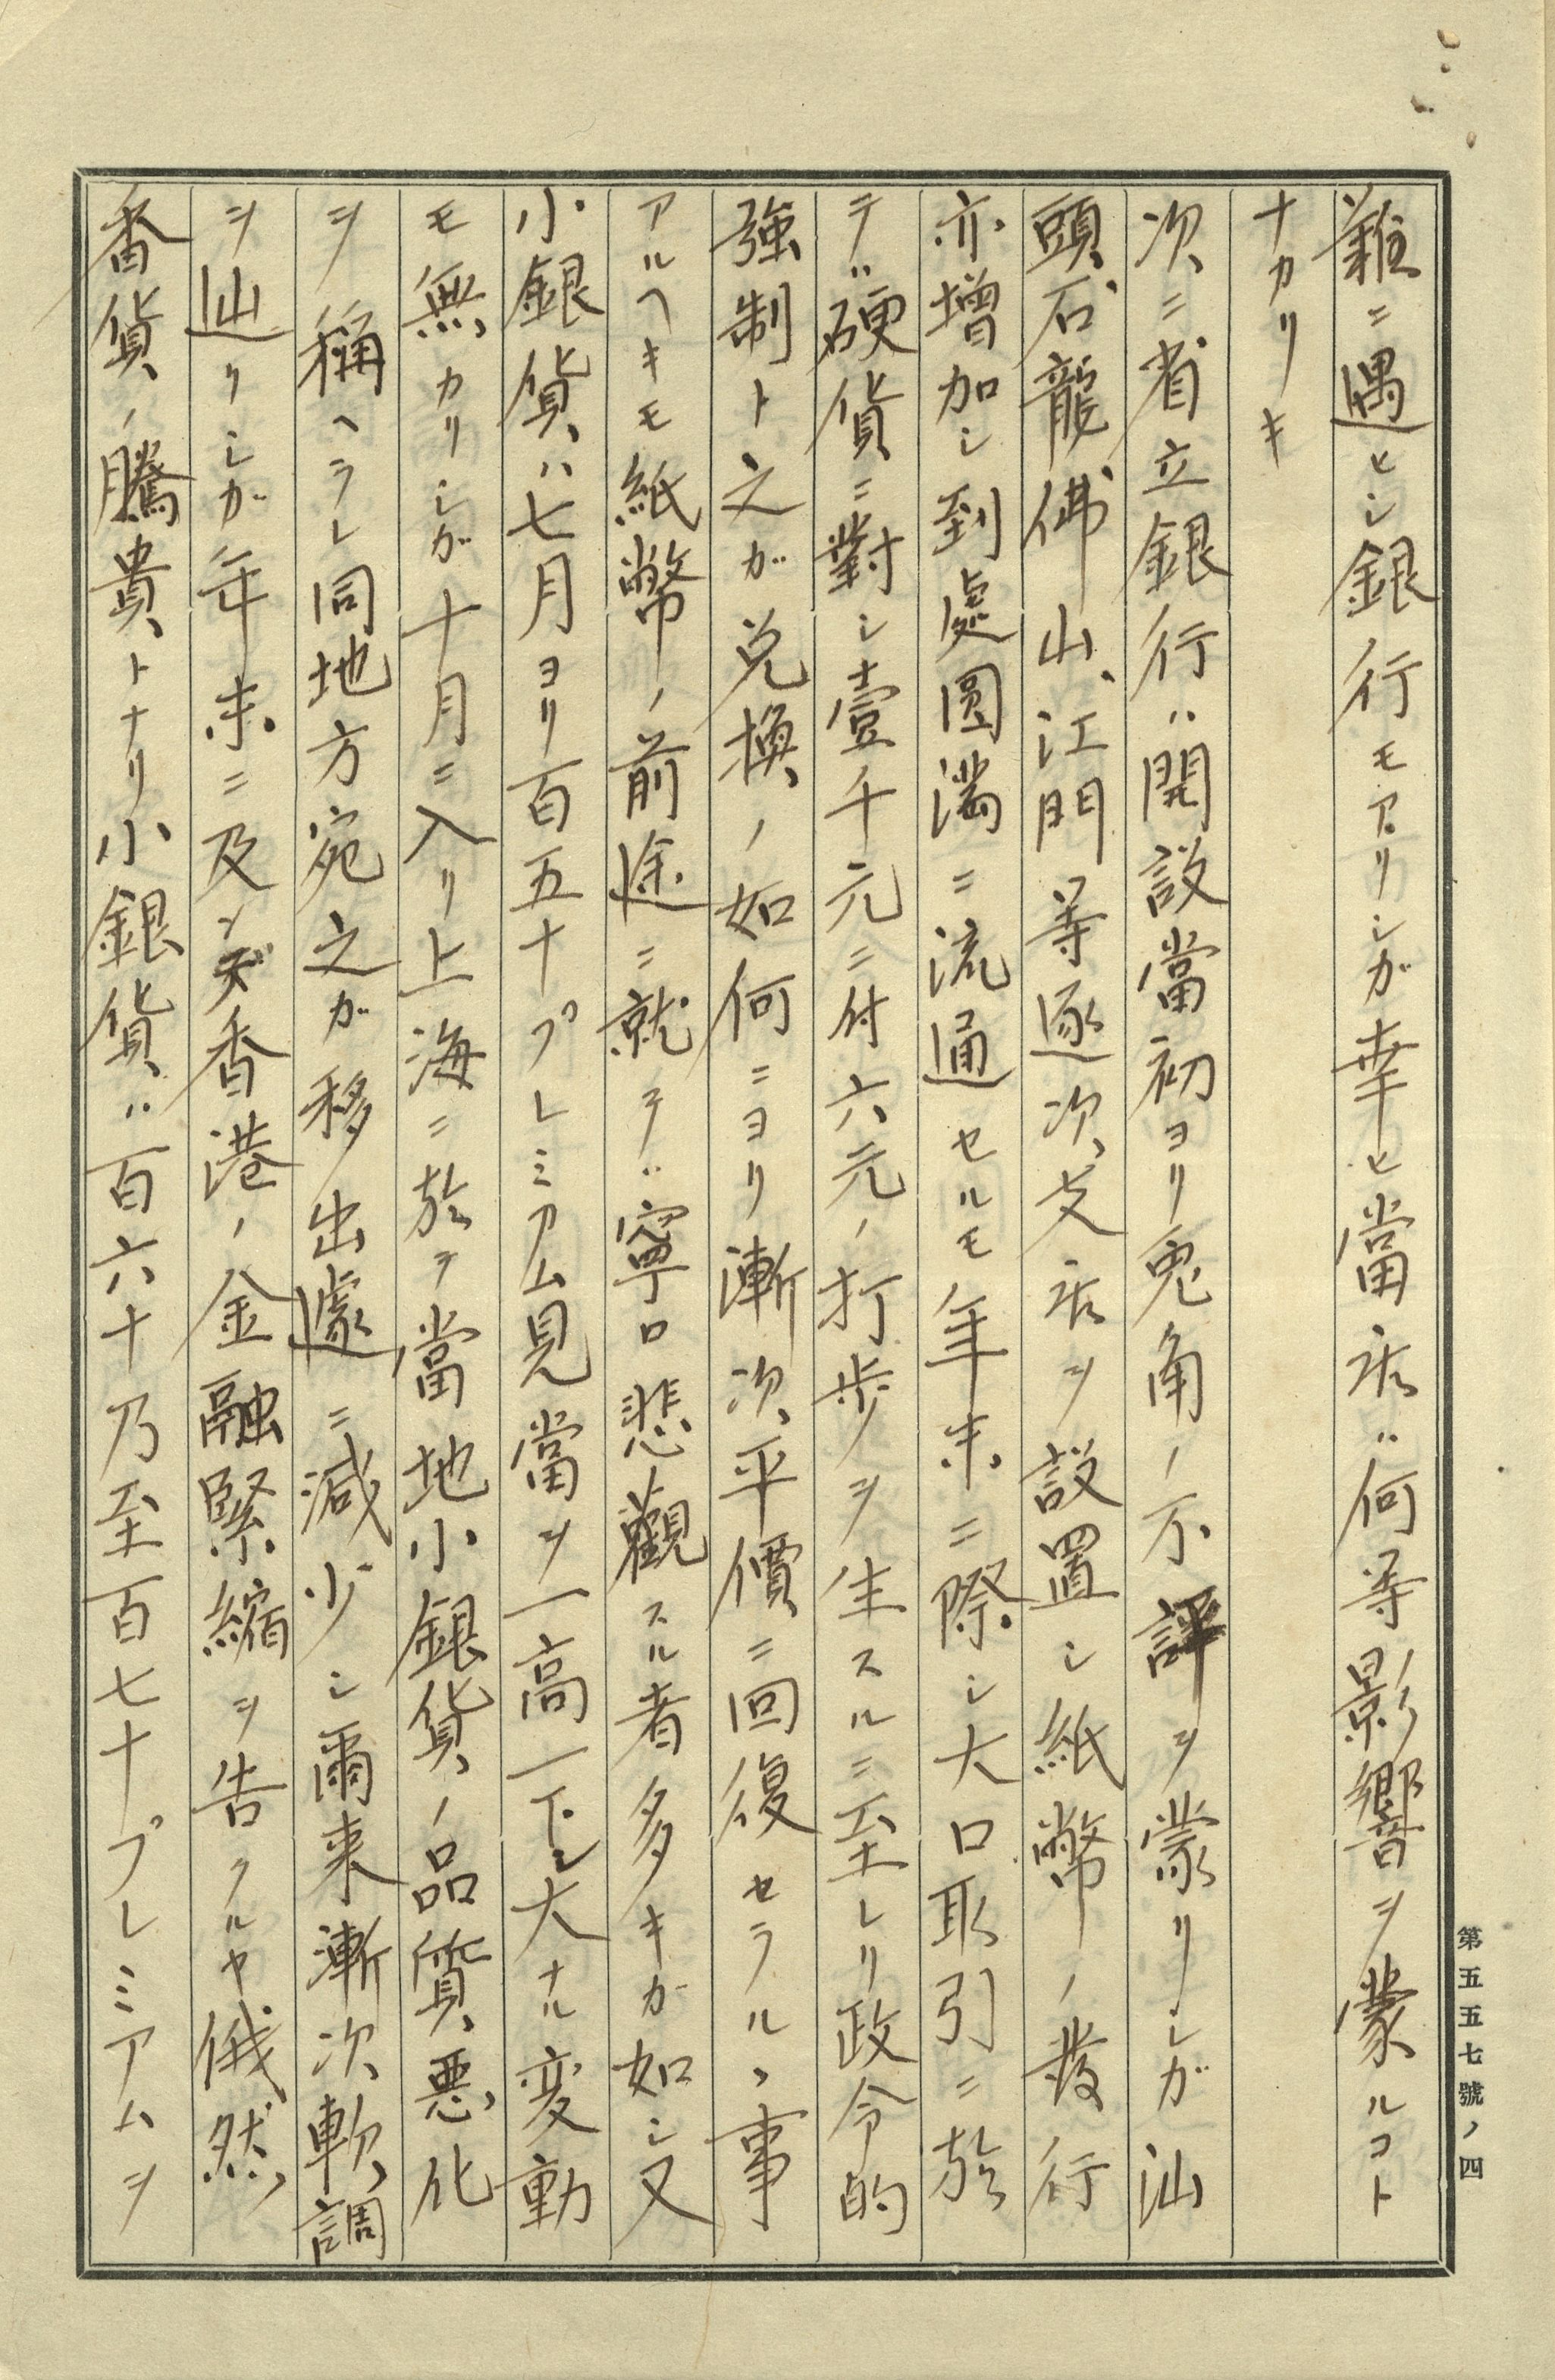 難ニ遇ヒシ銀行モアリシガ幸ヒ當店ハ何等影響ヲ蒙ルコト
ナカリキ
次ニ省立銀行ハ開設當初ヨリ兎角ノ不評ヲ蒙リシガ汕
頭、石龍、佛山、江門等逐次支店ヲ設置シ紙幣ノ發行
亦増加シ到處圓満ニ流通セルモ年末ニ際シ大口取引ニ於
テハ硬貨ニ對シ壹千元ニ付六元ノ打歩ヲ生スルニ至レリ政令的
強制ト之ガ兌換ノ如何ニヨリ漸次平價ニ回復セラルヽ事
アルヘキモ紙幣ノ前途ニ就テハ寧ロ悲觀スル者多キガ如シ又
小銀貨ハ七月ヨリ百五十プレミアム見當ヲ一高一下シ大ナル変動
モ無カリシガ十月ニ入リ上海ニ於テ當地小銀貨ノ品質悪化
ヲ稱ヘラレ同地方宛之ガ移出遽ニ減少シ爾来漸次軟調
ヲ辿リシガ年末ニ及ンデ香港ノ金融緊縮ヲ告クルヤ俄然
香貨ノ騰貴トナリ小銀貨ハ百六十乃至百七十プレミアムヲ
第五五七號ノ四